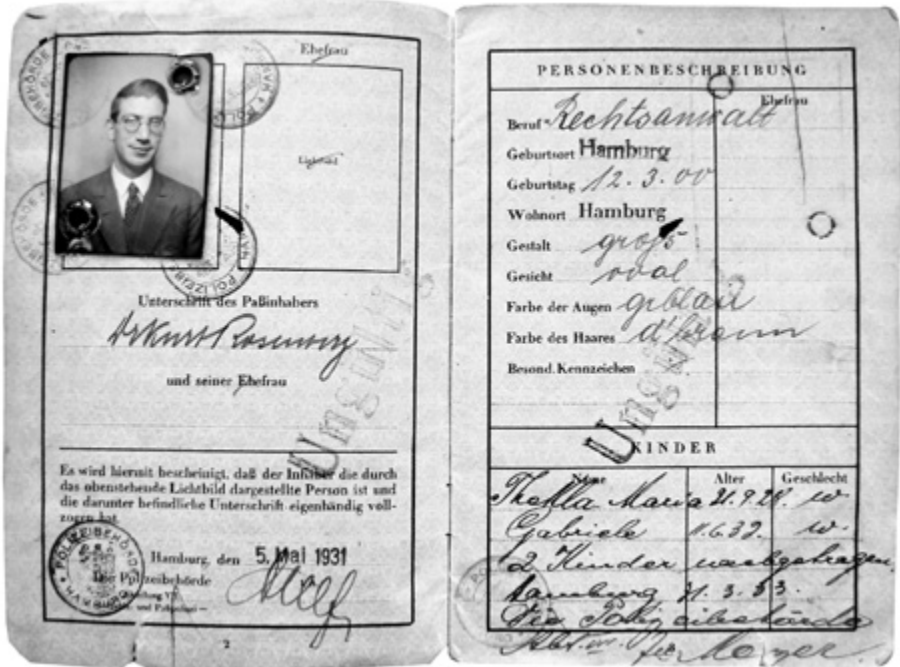 Ehefrau
Lichtbild
Unterschrift des Paßinhabers
Dr Kurt Rosenberg
und seiner Ehefrau
Ungültig
Es wird hiermit bescheinigt, daß der Inhaber die durch
das obenstehende Lichtbild dargestellte Person ist und
die darunter befindliche Unterschrift eigenhändig voll-
zogen hat.
POLIZEIBEHÖRDE HAMBURG
Hamburg, den 5. Mai 1931
Die Polizeibehörde
2
PERSONENBESCHREIBUNG
Ehefrau
Beruf Rechtsanwalt
Geburtsort Hamburg
Geburtstag 12.3.00
Wohnort Hamburg
Gestalt groß
Gesicht oval
Farbe der Augen grblau
Farbe des Haares d'braun
Besond. Kennzeichen
Ungültig
KINDER
Name Alter Geschlecht
Thekla Maria 21.9.28. w
Gabriele 11.6.32. w.
2 Kinder nachgetragen.
Hamburg 31.3.33
Die Polizeibehörde
Meyer